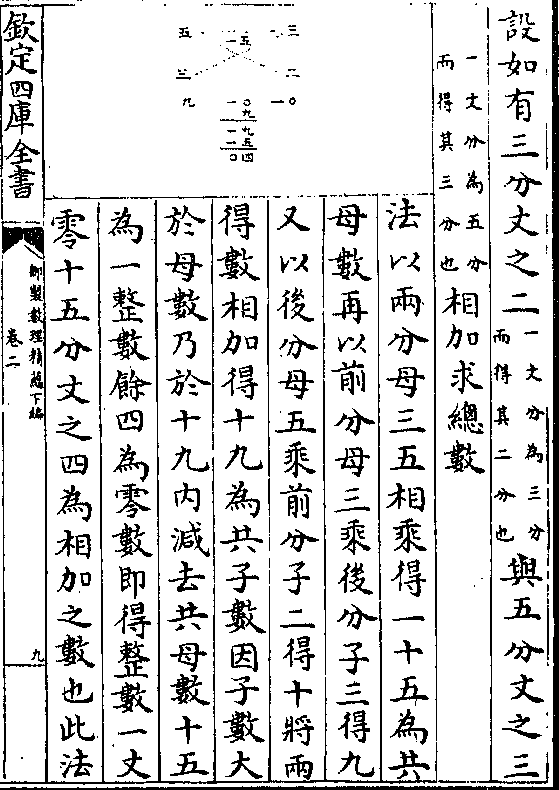 設如有三分丈之二一丈分為三分而得其二分也與五分丈之三
一丈分為五分而得其三分也相加求總數
法以兩分母三五相乘得一十五為共
母數再以前分母三乘後分子三得九
又以後分母五乘前分子二得十將兩
得數相加得十九為共子數因子數大
於母數乃於十九內減去共母數十五
為一整數餘四為零數即得整數一丈
零十五分丈之四為相加之數也此法
三 二 一〇
一五
一〇
九
一九
一五
〇四
五 三 九
欽定四庫全書
御製數理精蘊下編
卷二
九